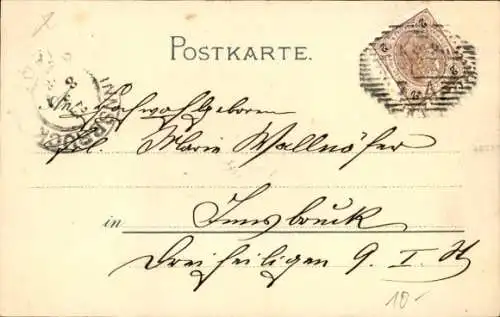 POSTKARTE.
INNSBRUCK
Hochwohlgeboren
Frl. Marie Wallnöfer
in Innsbruck
Dreiheiligen 9. I. St
10-